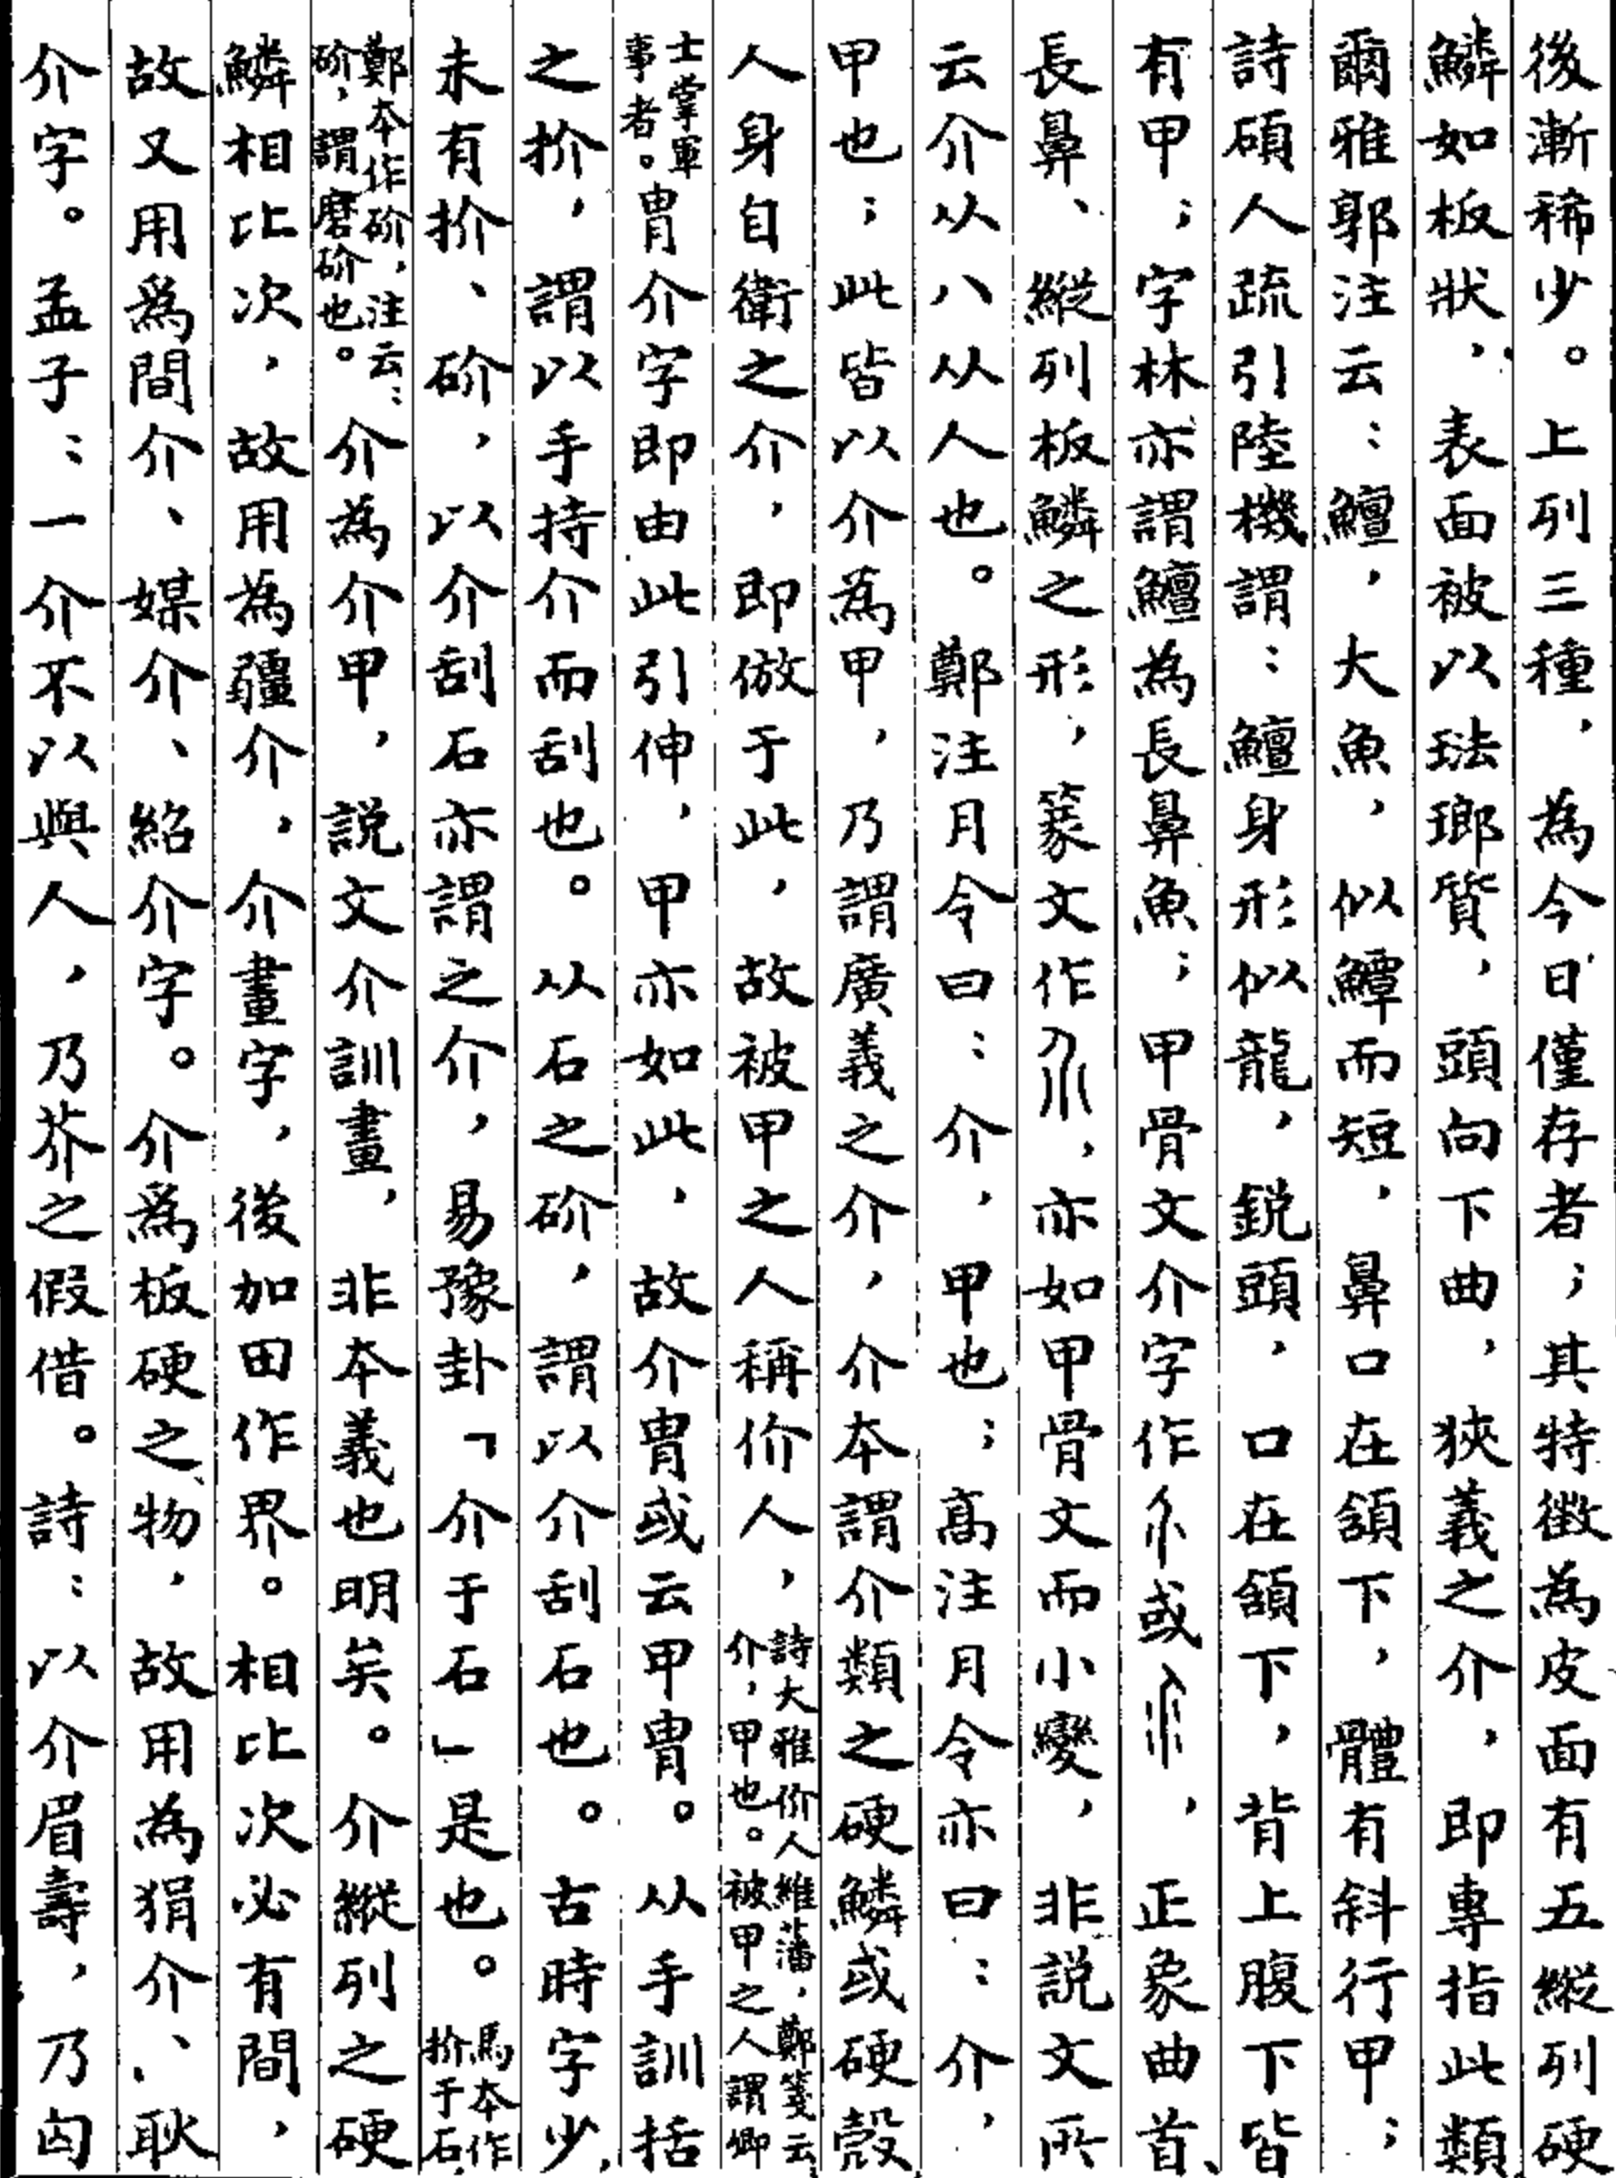 後漸稀少。上列三種，為今日僅存者；其特徵為皮面有五縱列硬
鱗如板狀，表面被以琺瑯質，頭向下曲，狹義之介，即專指此類
爾雅郭注云：鱣，大魚，似鱏而短，鼻口在頷下，體有斜行甲；
詩碩人疏引陸機謂：鱣身形似龍，銳頭，口在頷下，背上腹下皆
有甲；字林亦謂鱣為長鼻魚；甲骨文介字作 或 ，正象曲首、
長鼻、縱列板鱗之形，篆文作 ，亦如甲骨文而小變，非説文所
云介从八从人也。鄭注月令曰：介，甲也；高注月令亦曰：介，
甲也；此皆以介為甲，乃謂廣義之介，介本謂介類之硬鱗或硬殼
人身自衛之介，即倣于此，故被甲之人稱价人，詩大雅价人維藩，鄭箋云介，甲也。被甲之人謂卿
士掌軍事者。胄介字即由此引伸，甲亦如此，故介胄或云甲胄。从手訓括
之扴，謂以手持介而刮也。从石之砎，謂以介刮石也。古時字少，
未有扴、砎，以介刮石亦謂之介，易豫卦「介于石」是也。馬本作扴于石，
鄭本作砎，注云：砎，謂磨砎也。介為介甲，説文介訓畫，非本義也明矣。介縱列之硬
鱗相比次，故用為疆介，介畫字，後加田作界。相比次必有間，
故又用爲間介、媒介、紹介字。介爲板硬之物，故用為狷介、耿
介字。孟子：一介不以與人，乃芥之假借。詩：以介眉壽，乃匄